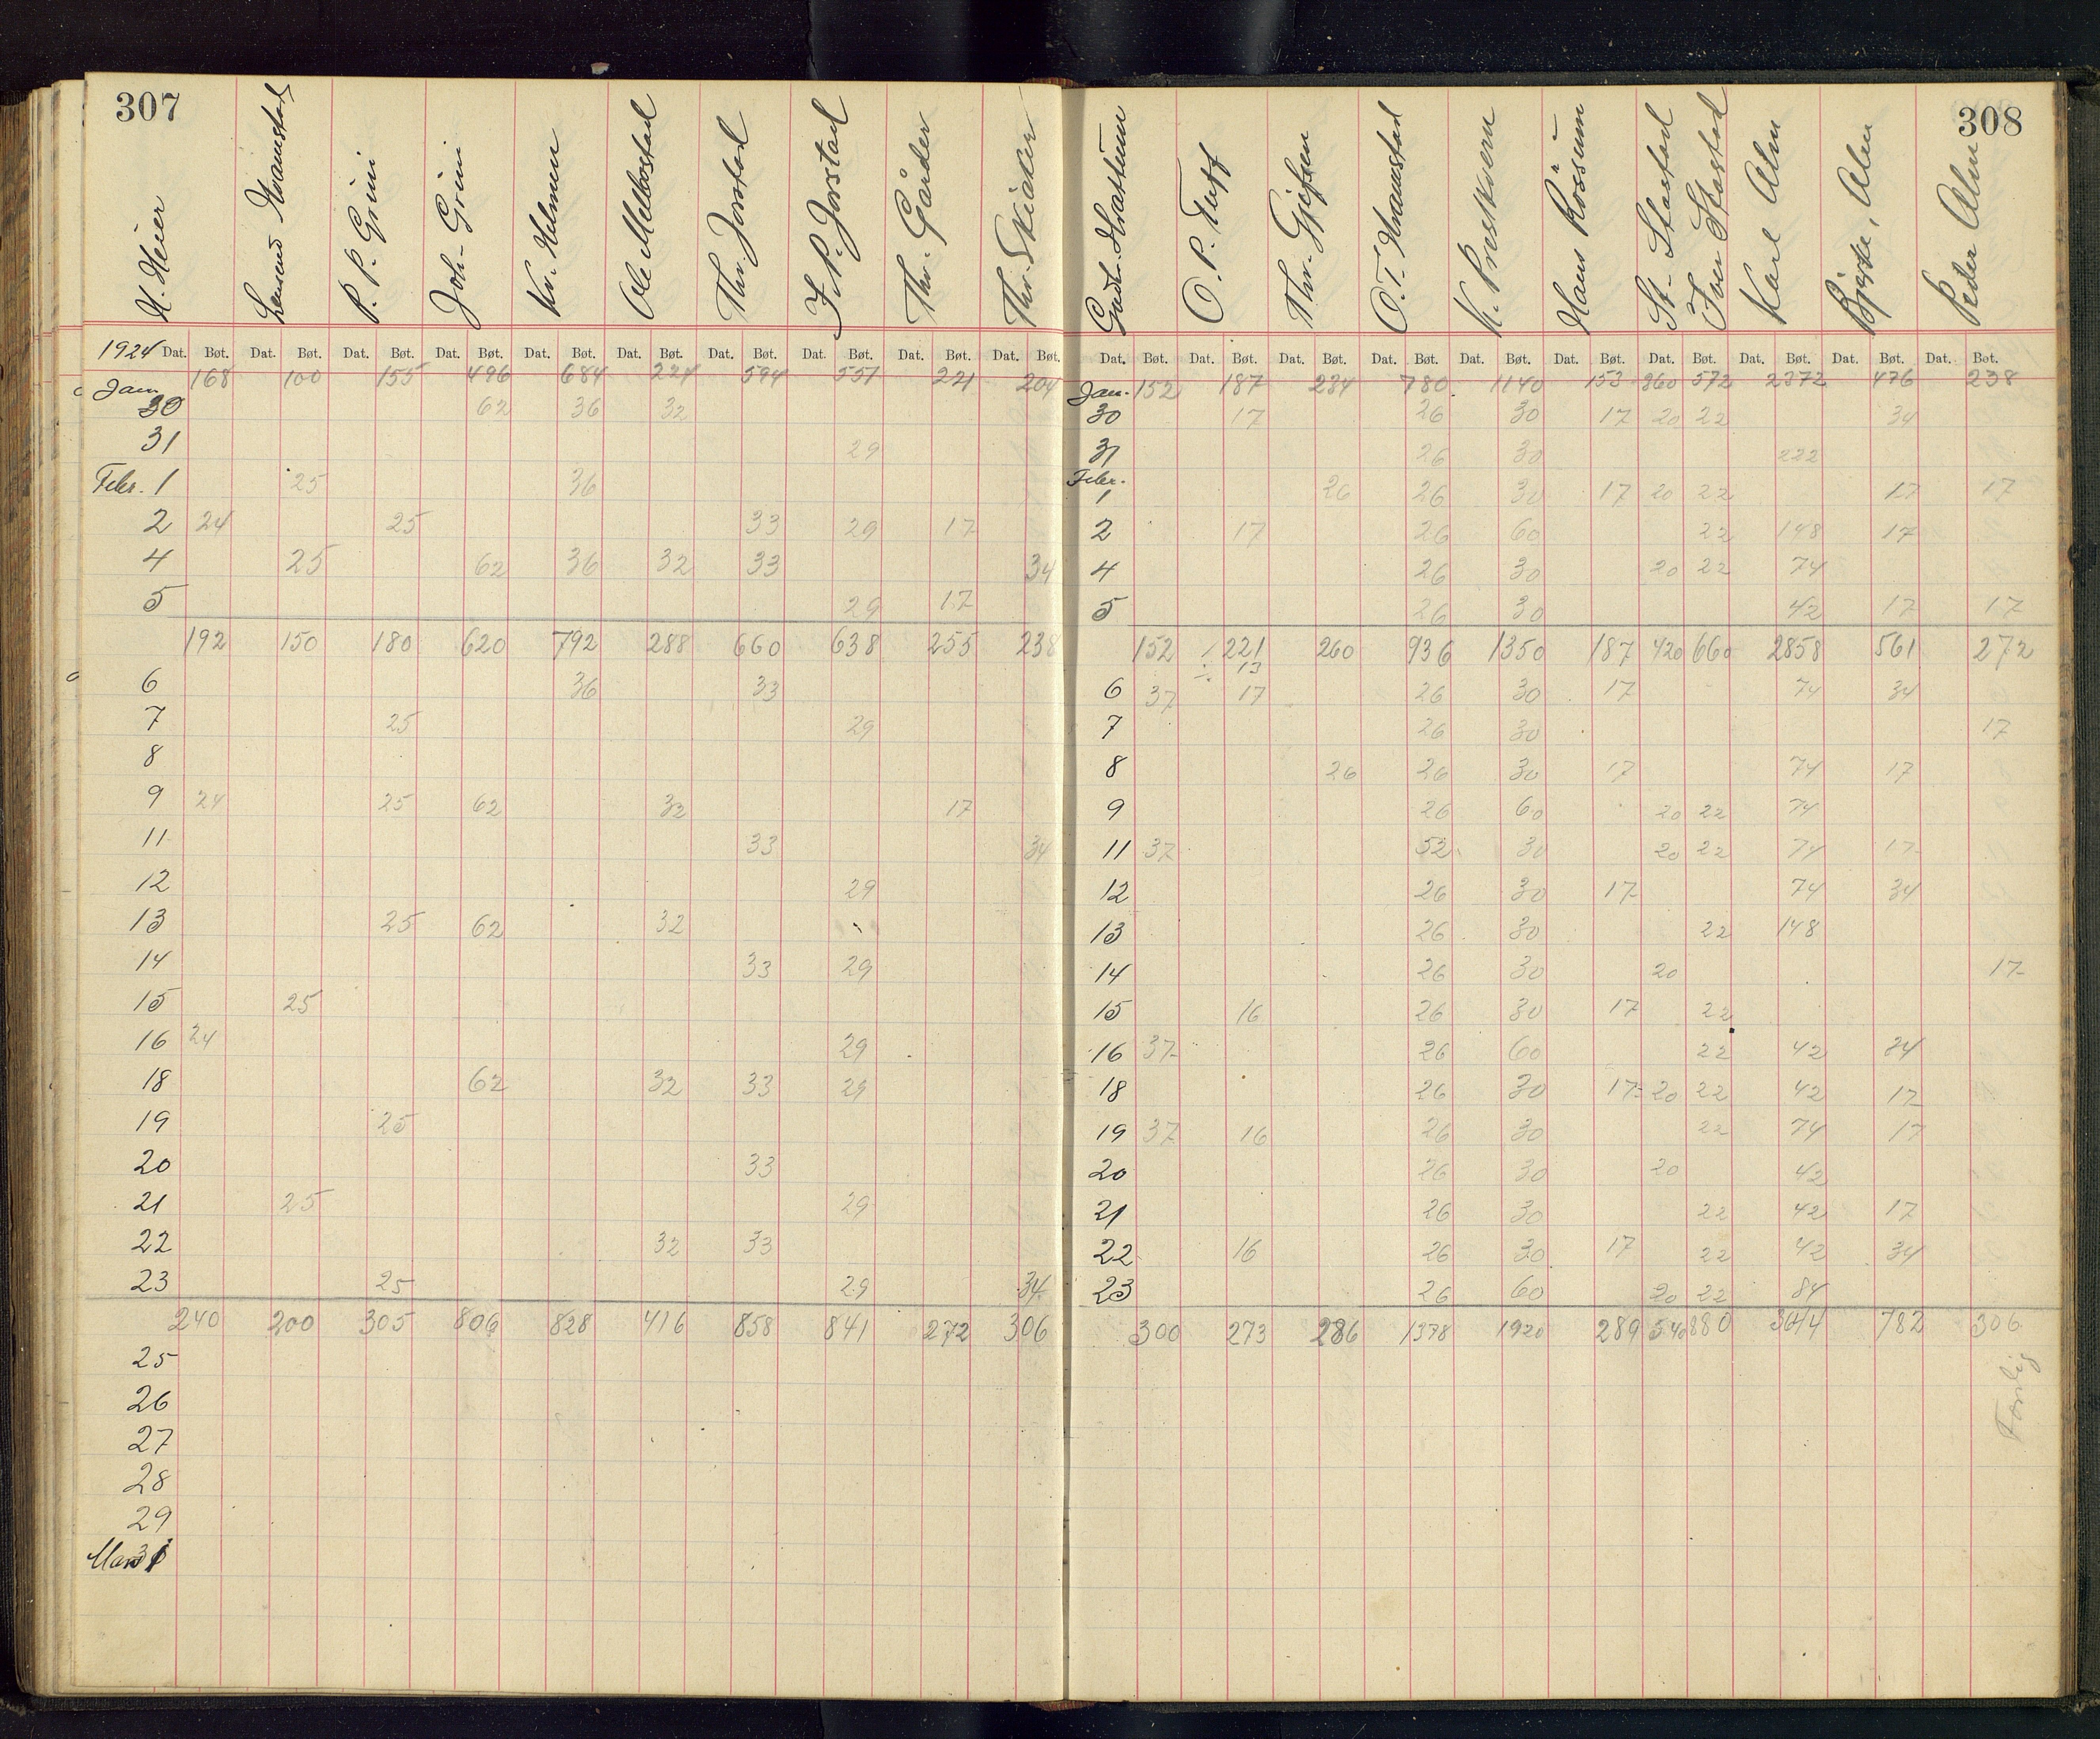 307
M. Meier
P. P. Grini
Joh. Grini
Kr. Helmen
Ole Melbostad
Thr. Jorstad
J. P. Jorstad
Thr. Gårder
Thr. Skiaker
1924 Dat. Bøt. Dat. Bøt. Dat. Bøt. Dat. Bøt. Dat. Bøt. Dat. Bøt. Dat. Bøt. Dat. Bøt. Dat. Bøt. Dat. Bøt.
Jan. 168 100 155 496 684 224 594 551 221 204
30 62 36 32
31 29
Febr. 1 25 36
2 24 25 33 29 17
4 25 62 36 32 33 34
5 29 17
192 150 180 620 792 288 660 638 255 238
6 36 33
7 25 29
8
9 24 25 62 32 17
11 33 34
12 29
13 25 62 32
14 33 29
15 25
16 24 29
18 62 32 33 29
19 25
20 33
21 25 29
22 32 33
23 25 29 34
240 200 305 806 828 416 858 841 272 306
25
26
27
28
29
308
O. P. Tuff
Thr. Gjefsen
O. T. Hvamstad
K. Prestkvern
Hans Rossum
St. Stastad
Iver Stastad
Karl Alm
Alm
Peder Alm
Dat. Bøt. Dat. Bøt. Dat. Bøt. Dat. Bøt. Dat. Bøt. Dat. Bøt. Dat. Bøt. Dat. Bøt. Dat. Bøt. Dat. Bøt.
Jan. 152 187 234 780 1140 153 360 572 2372 476 238
30 17 26 30 17 20 22 34
31 26 30 222
Febr.
1 26 26 30 17 20 22 17 17
2 17 26 60 22 148 17
4 26 30 20 22 74
5 26 30 42 17 17
152 221 260 936 1350 187 420 660 2858 561 272
÷ 13
6 37 17 26 30 17 74 34
7 26 30 17
8 26 26 30 17 74 17
9 26 60 20 22 74
11 37 52 30 20 22 74 17
12 26 30 17 74 34
13 26 30 22 148
14 26 30 20 17
15 16 26 30 17 22
16 37 26 60 22 42 34
18 26 30 17 20 22 42 17
19 37 16 26 30 22 74 17
20 26 30 20 42
21 26 30 22 42 17
22 16 26 30 17 22 42 34
23 26 60 20 22 84
300 273 286 1378 1920 289 540 880 3644 782 306